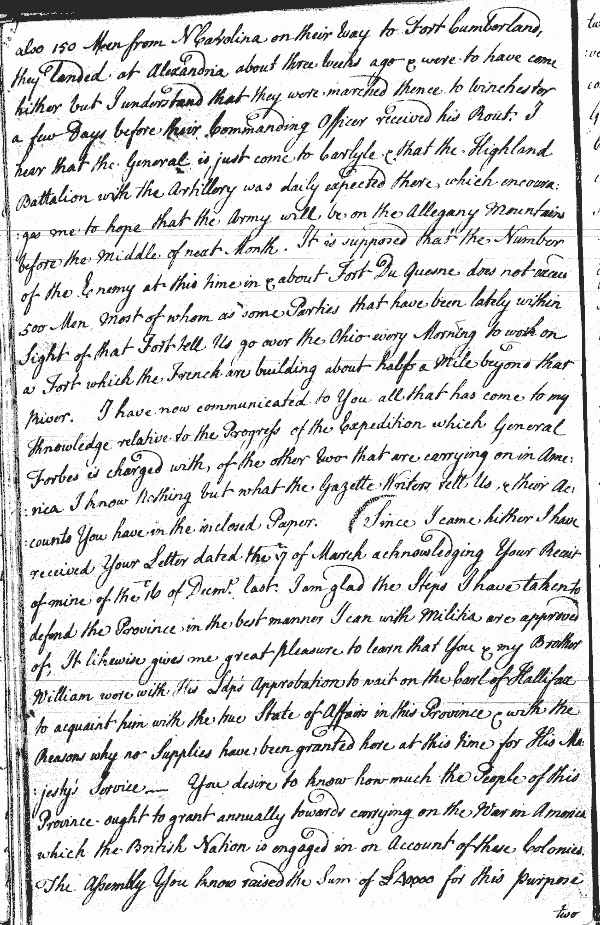 also 150 Men from N Carolina on their Way to Fort Cumberland,
they landed at Alexandria about three Weeks ago & were to have come
hither but I understand that they were marched thence to Winchester
a few Days before their Commanding Officer received his Rout. I
hear that the General is just come to Carlyle & that the Highland
Battalion with the Artillery was daily expected there, which encoura:
:ges me to hope that the Army will be on the Allegany Mountains
before the Middle of next Month. It is supposed that the Number
of the Enemy at this time in & about Fort Du Quesne does not exceed
500 Men most of whom as some Parties that have been lately within
Sight of that Fort tell Us go over the Ohio every Morning to work on
a Fort which the French are building about half a Mile beyond that
River. I have now communicated to You all that has come to my
Knowledge relative to the Progress of the Expedition which General
Forbes is charged with, of the other two that are carrying on in Ame:
:rica I know Nothing but what the Gazette Writers tell Us, & their Ac:
:counts You have in the inclosed Paper. (Since I came hither I have
received Your Letter dated the 7 of March acknowledging Your Receit
of mine of the 16 of Decmr. last. I am glad the Steps I have taken to
defend the Province in the best manner I can with Militia are approved
of, It likewise gives me great pleasure to learn that You & my Brother
William were with His Ldp's Approbation to wait on the Earl of Hallifax
to acquaint him with the true State of Affairs in this Province & with the
Reasons why no Supplies have been granted here at this time for His Ma:
:jesty's Service — You desire to know how much the People of this
Province ought to grant annually towards carrying on the War in America
which the British Nation is engaged in on Account of these Colonies.
The Assembly You know raised the Sum of £40000 for this purpose
two